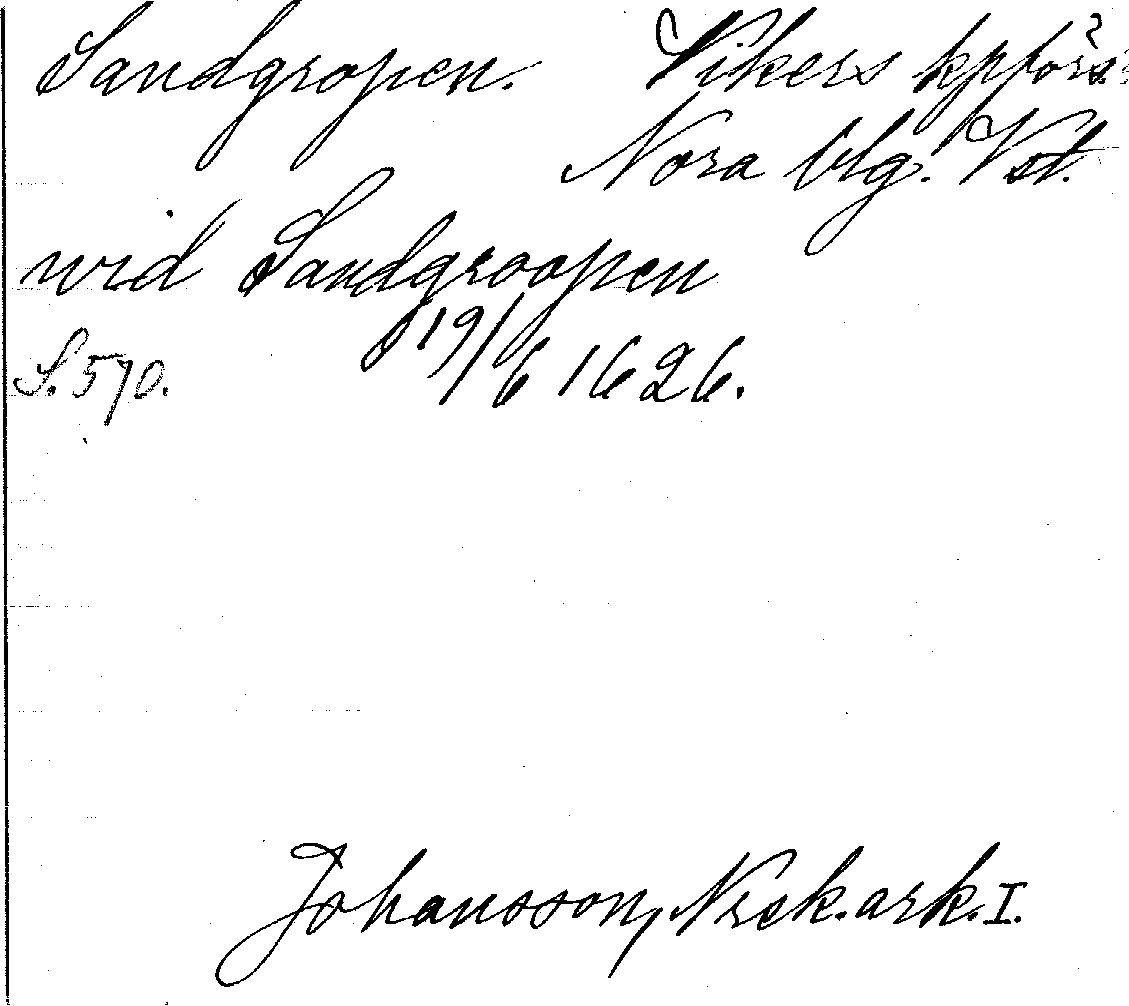 Sandgropen. Vikers kpförs.
Nora blg. Vst.
wid Sandgroopen
S. 570. 19/6 1626.
Johansson, Nrsk. ark. I.